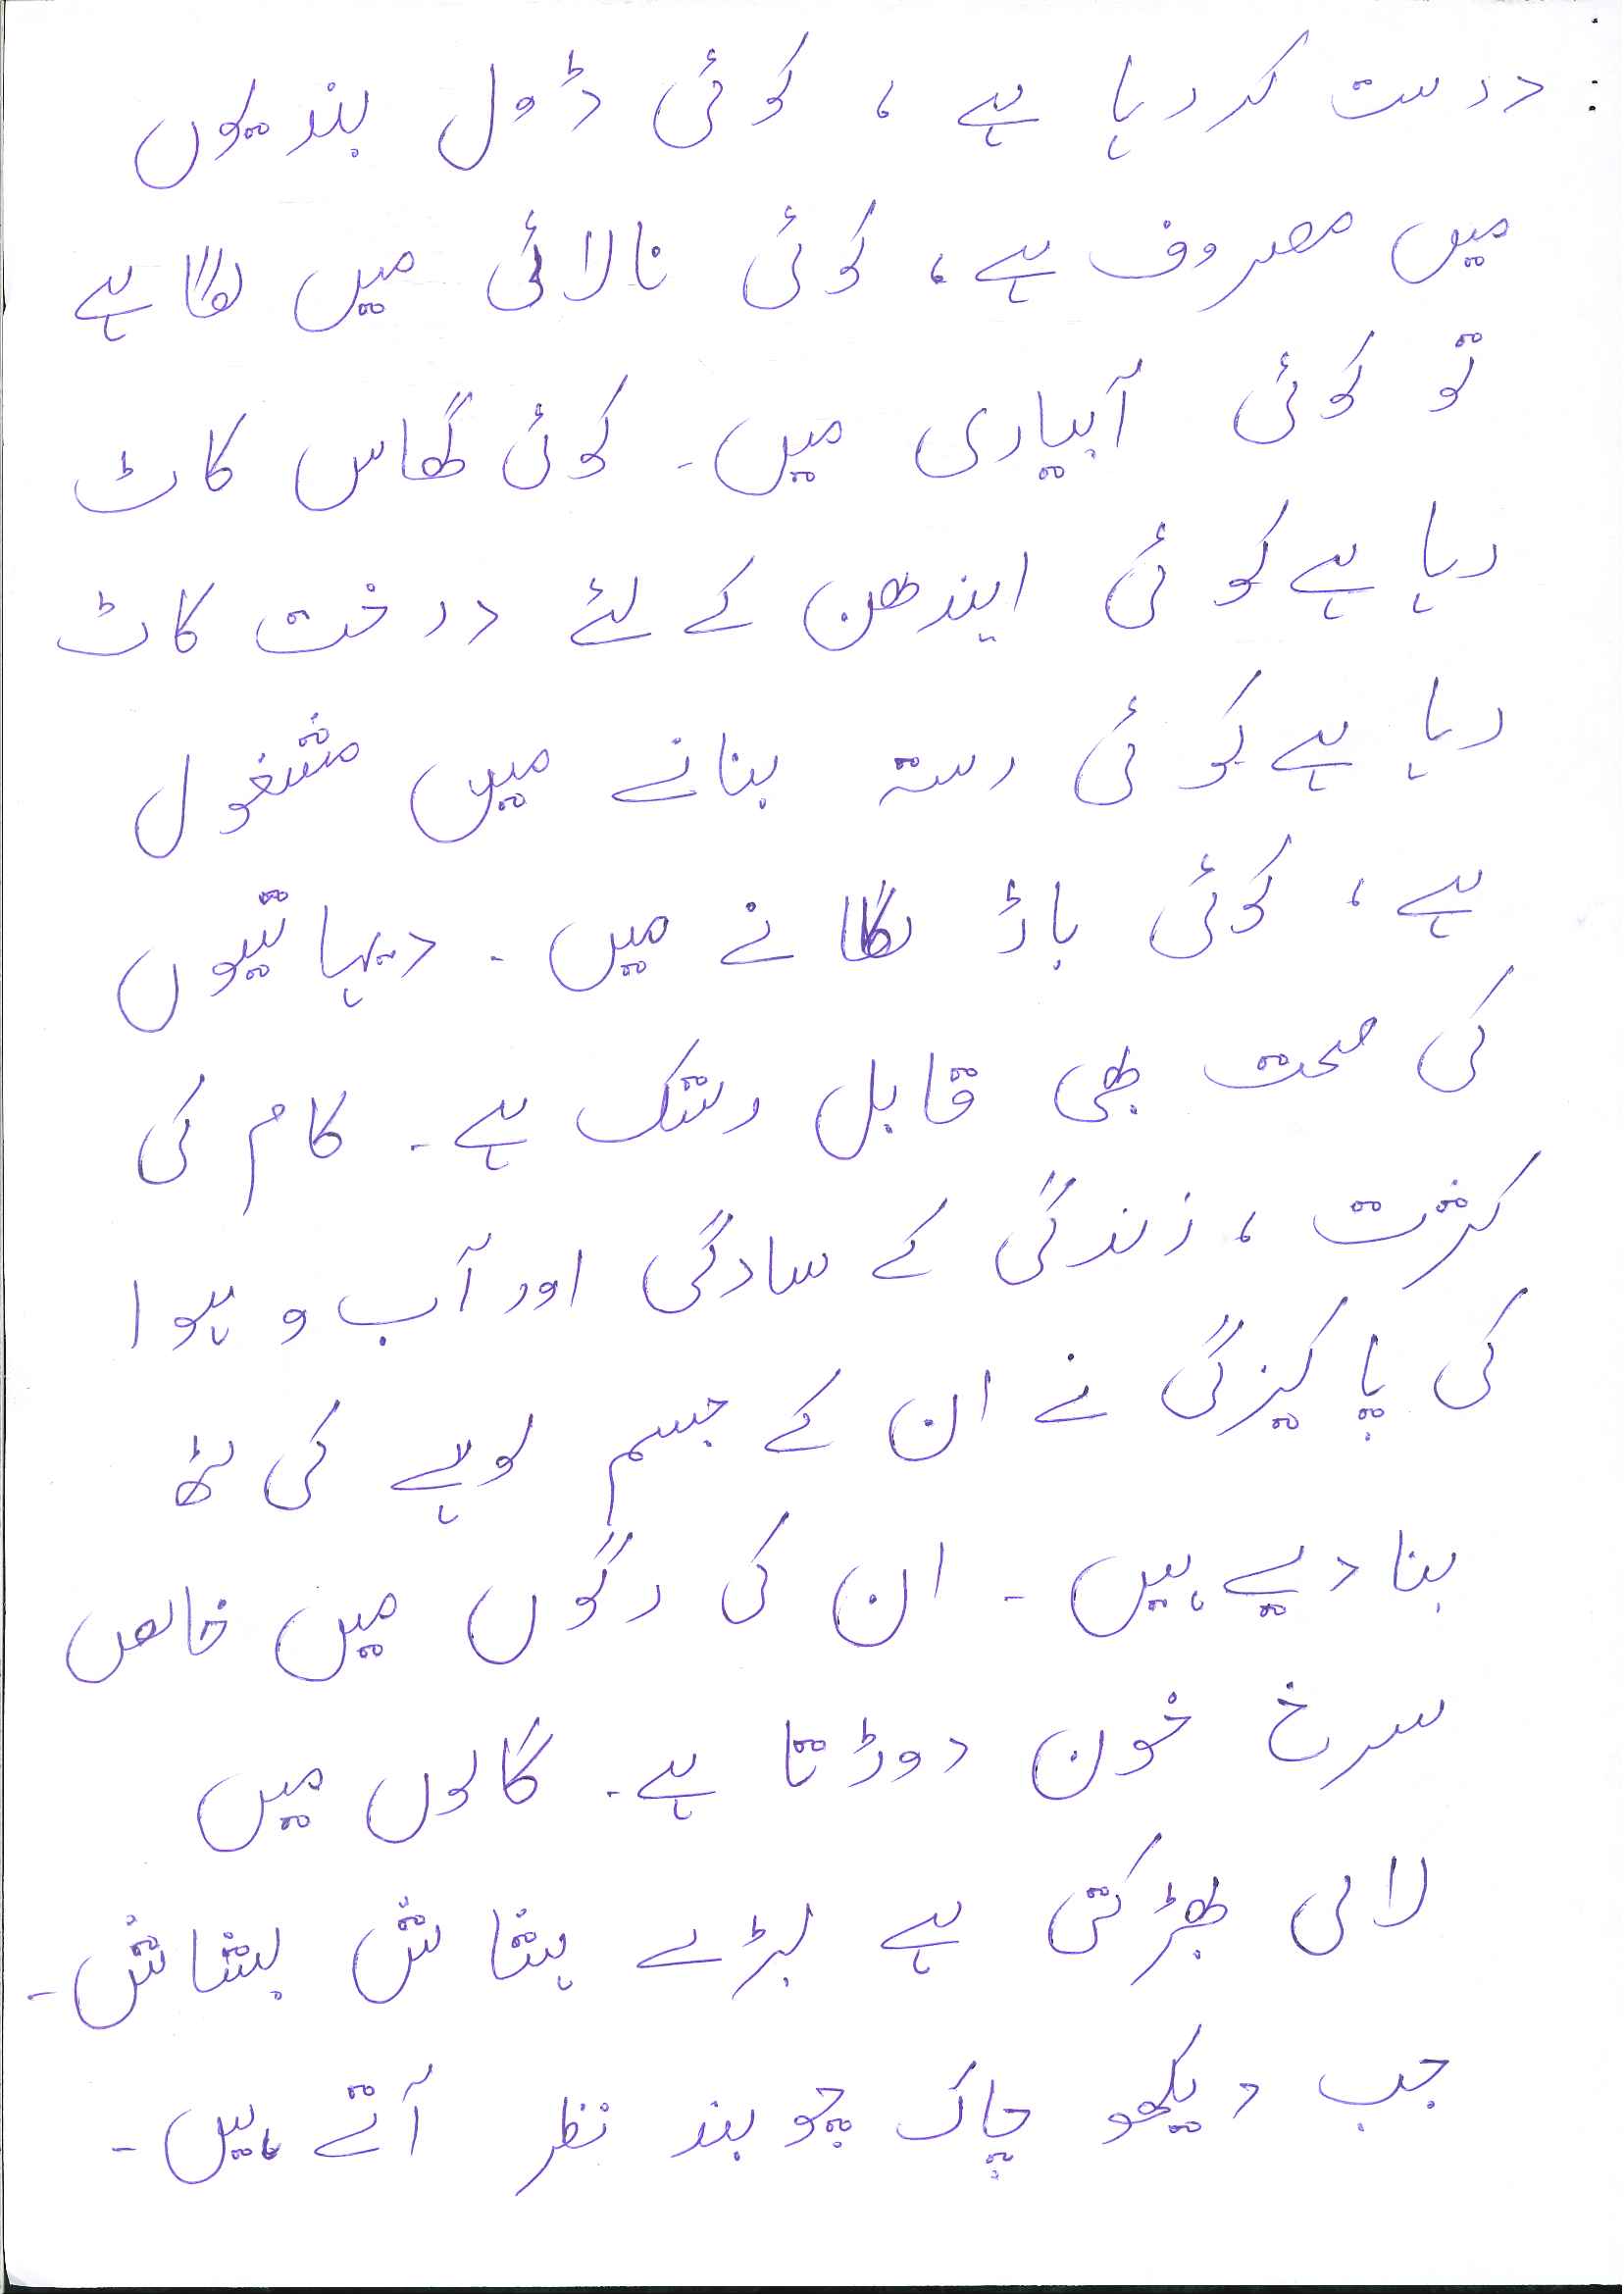 درست کر رہا ہے ، کوئی ڈول بندیوں
میں مصروف ہے ، کوئی نالائی میں لگا ہے
تو کوئی آبیاری میں ۔ کوئی گھاس کاٹ
رہا ہے کوئی ایندھن کے لئے درخت کاٹ
رہا ہے کوئی رستہ بنانے میں مشغول
ہے ، کوئی باڑ لگانے میں ۔ دیہاتیوں
کی صحت بھی قابل رشک ہے ۔ کام کی
کثرت ، زندگی کے سادگی اور آب و ہوا
کی پاکیزگی نے ان کے جسم لوہے کی لٹھ
بنا دیے ہیں ۔ ان کی رگوں میں خالص
سرخ خون دوڑتا ہے ۔ گالوں میں
لالی بھڑکتی ہے بڑے ہشاش بشاش ۔
جب دیکھو چاک چوبند نظر آتے ہیں ۔